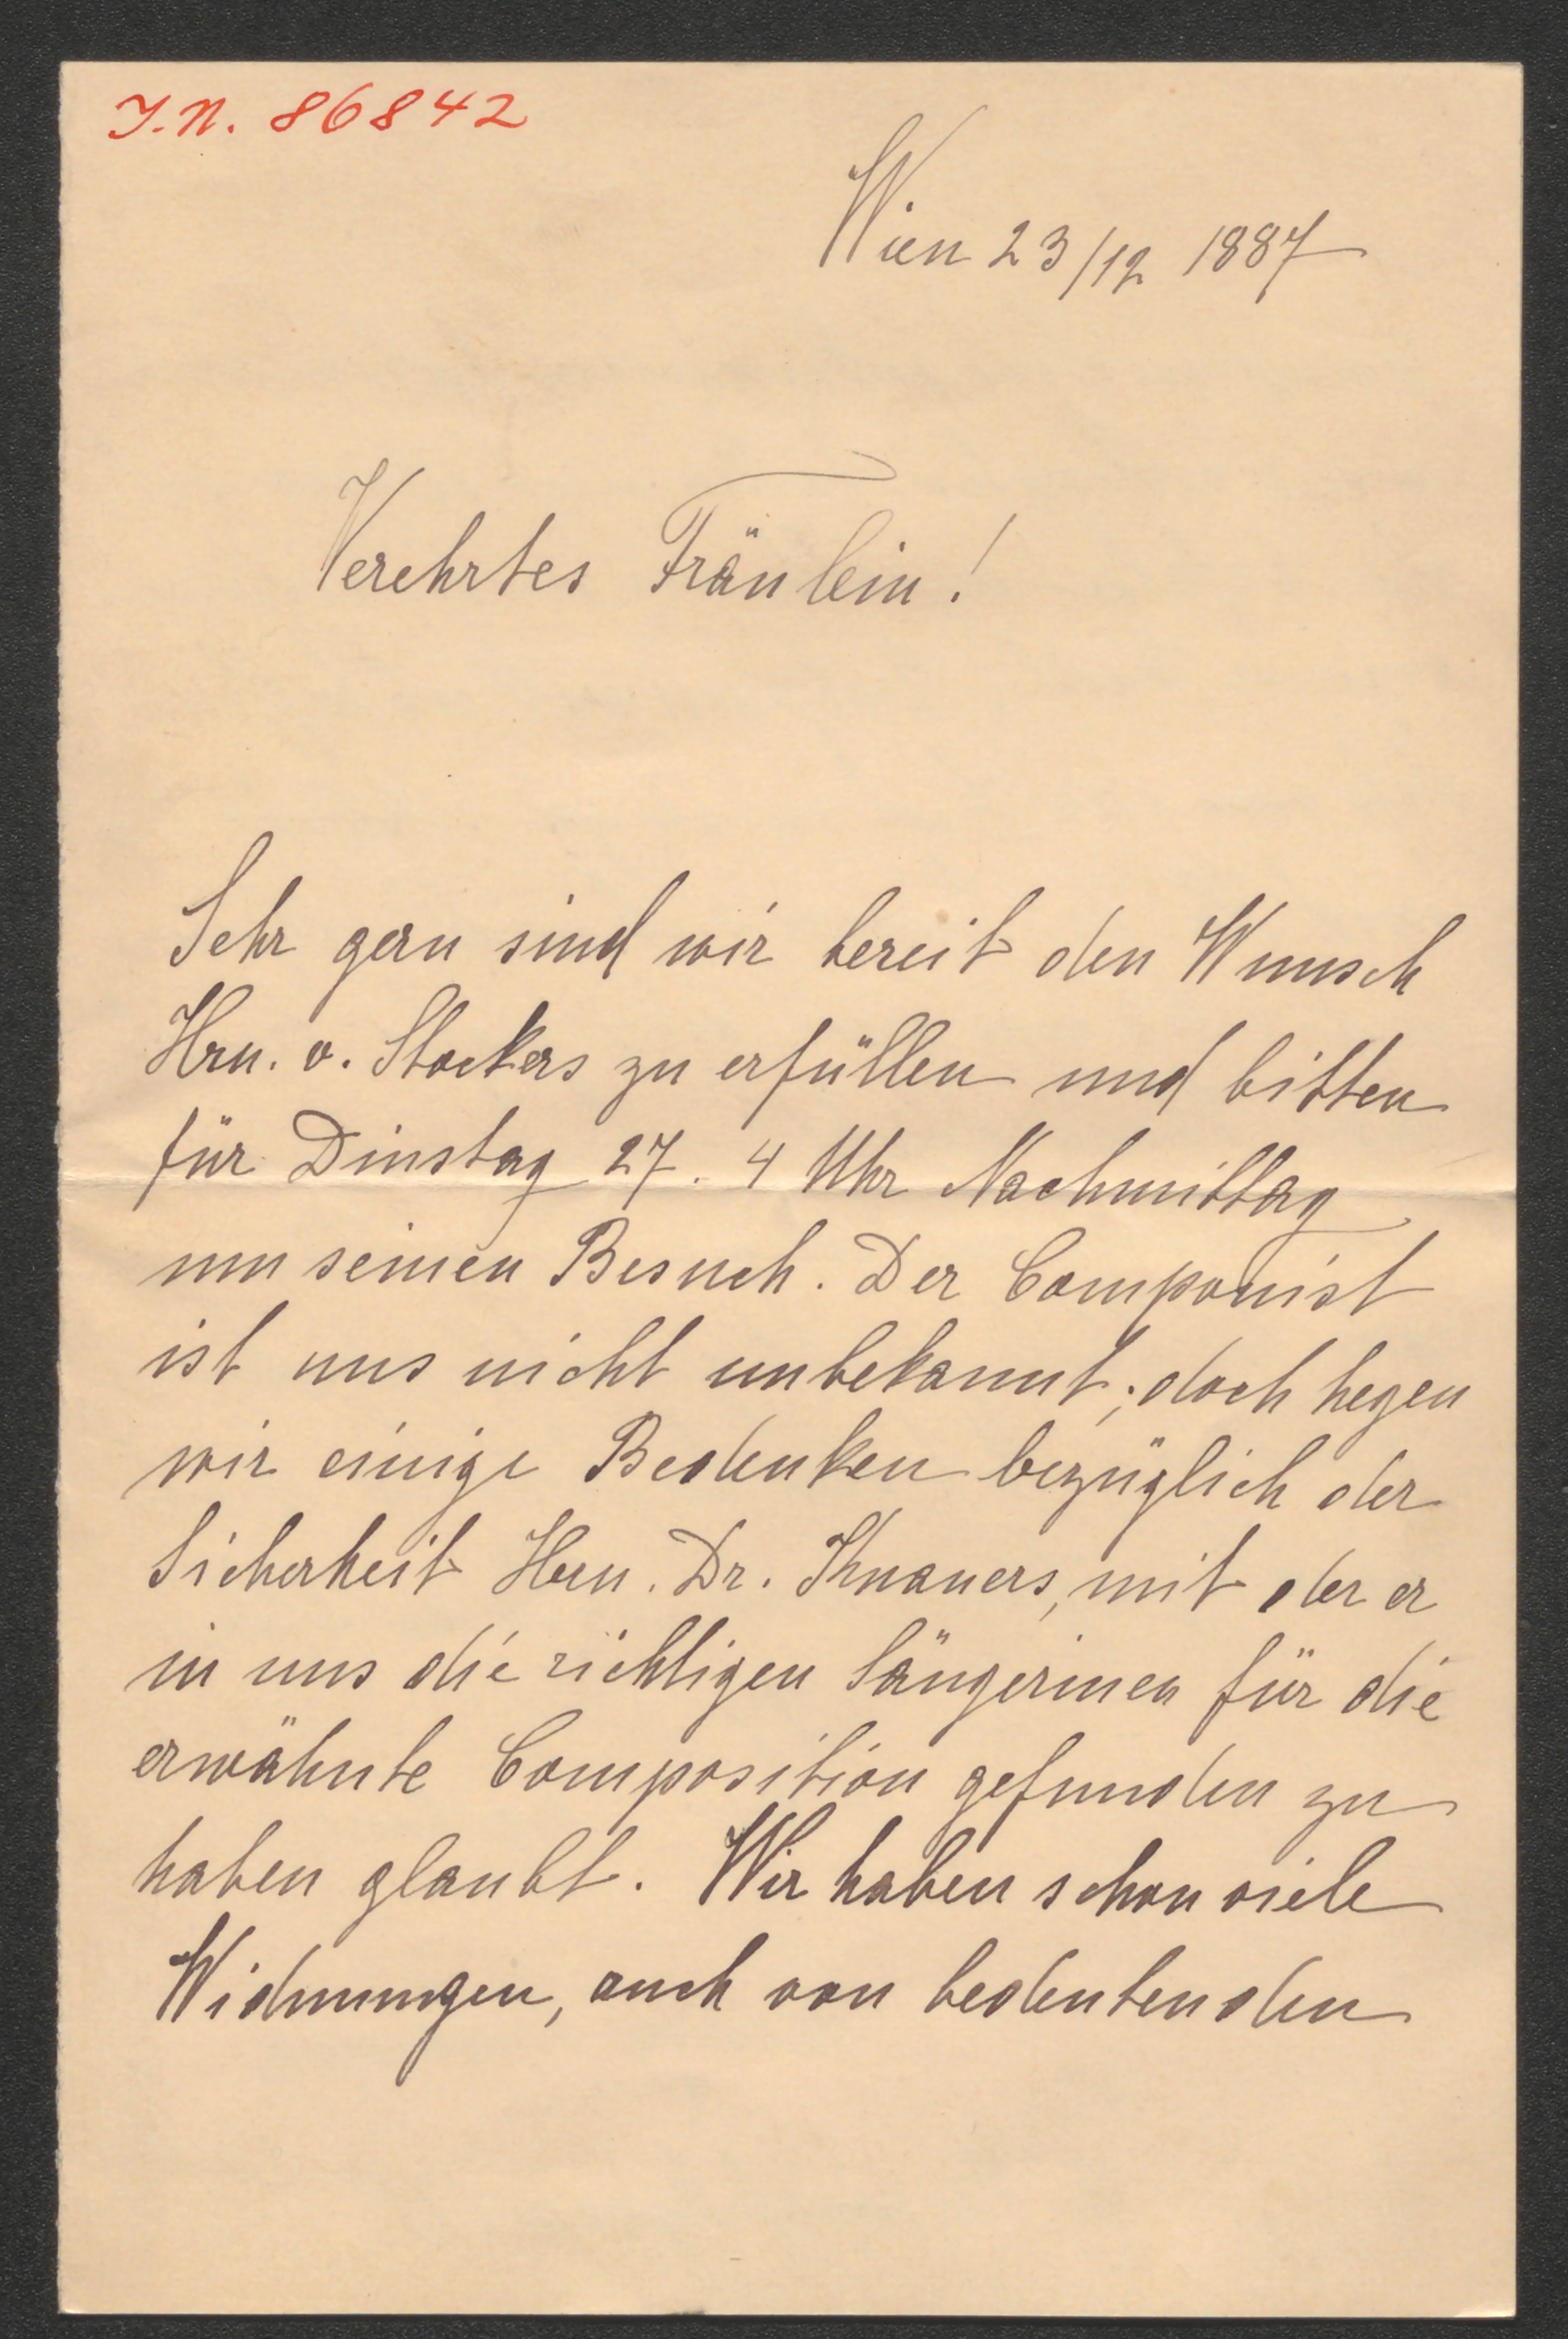 I.N. 86842
Wien 23/12 1887
Verehrtes Fräulein!
Sehr gern sind wir bereit den Wunsch
Hrn. v. Stockers zu erfüllen und bitten
für Dinstag 27. 4 Uhr Nachmittag
um seinen Besuch. Der Componist
ist uns nicht unbekannt; doch hegen
wir einige Bedenken bezüglich der
Sicherheit Hrn. Dr. Knauers, mit der er
in uns die richtigen Sängerinen für die
erwähnte Composition gefunden zu
haben glaubt. Wir haben schon viele
Widmungen, auch von bedeutenden